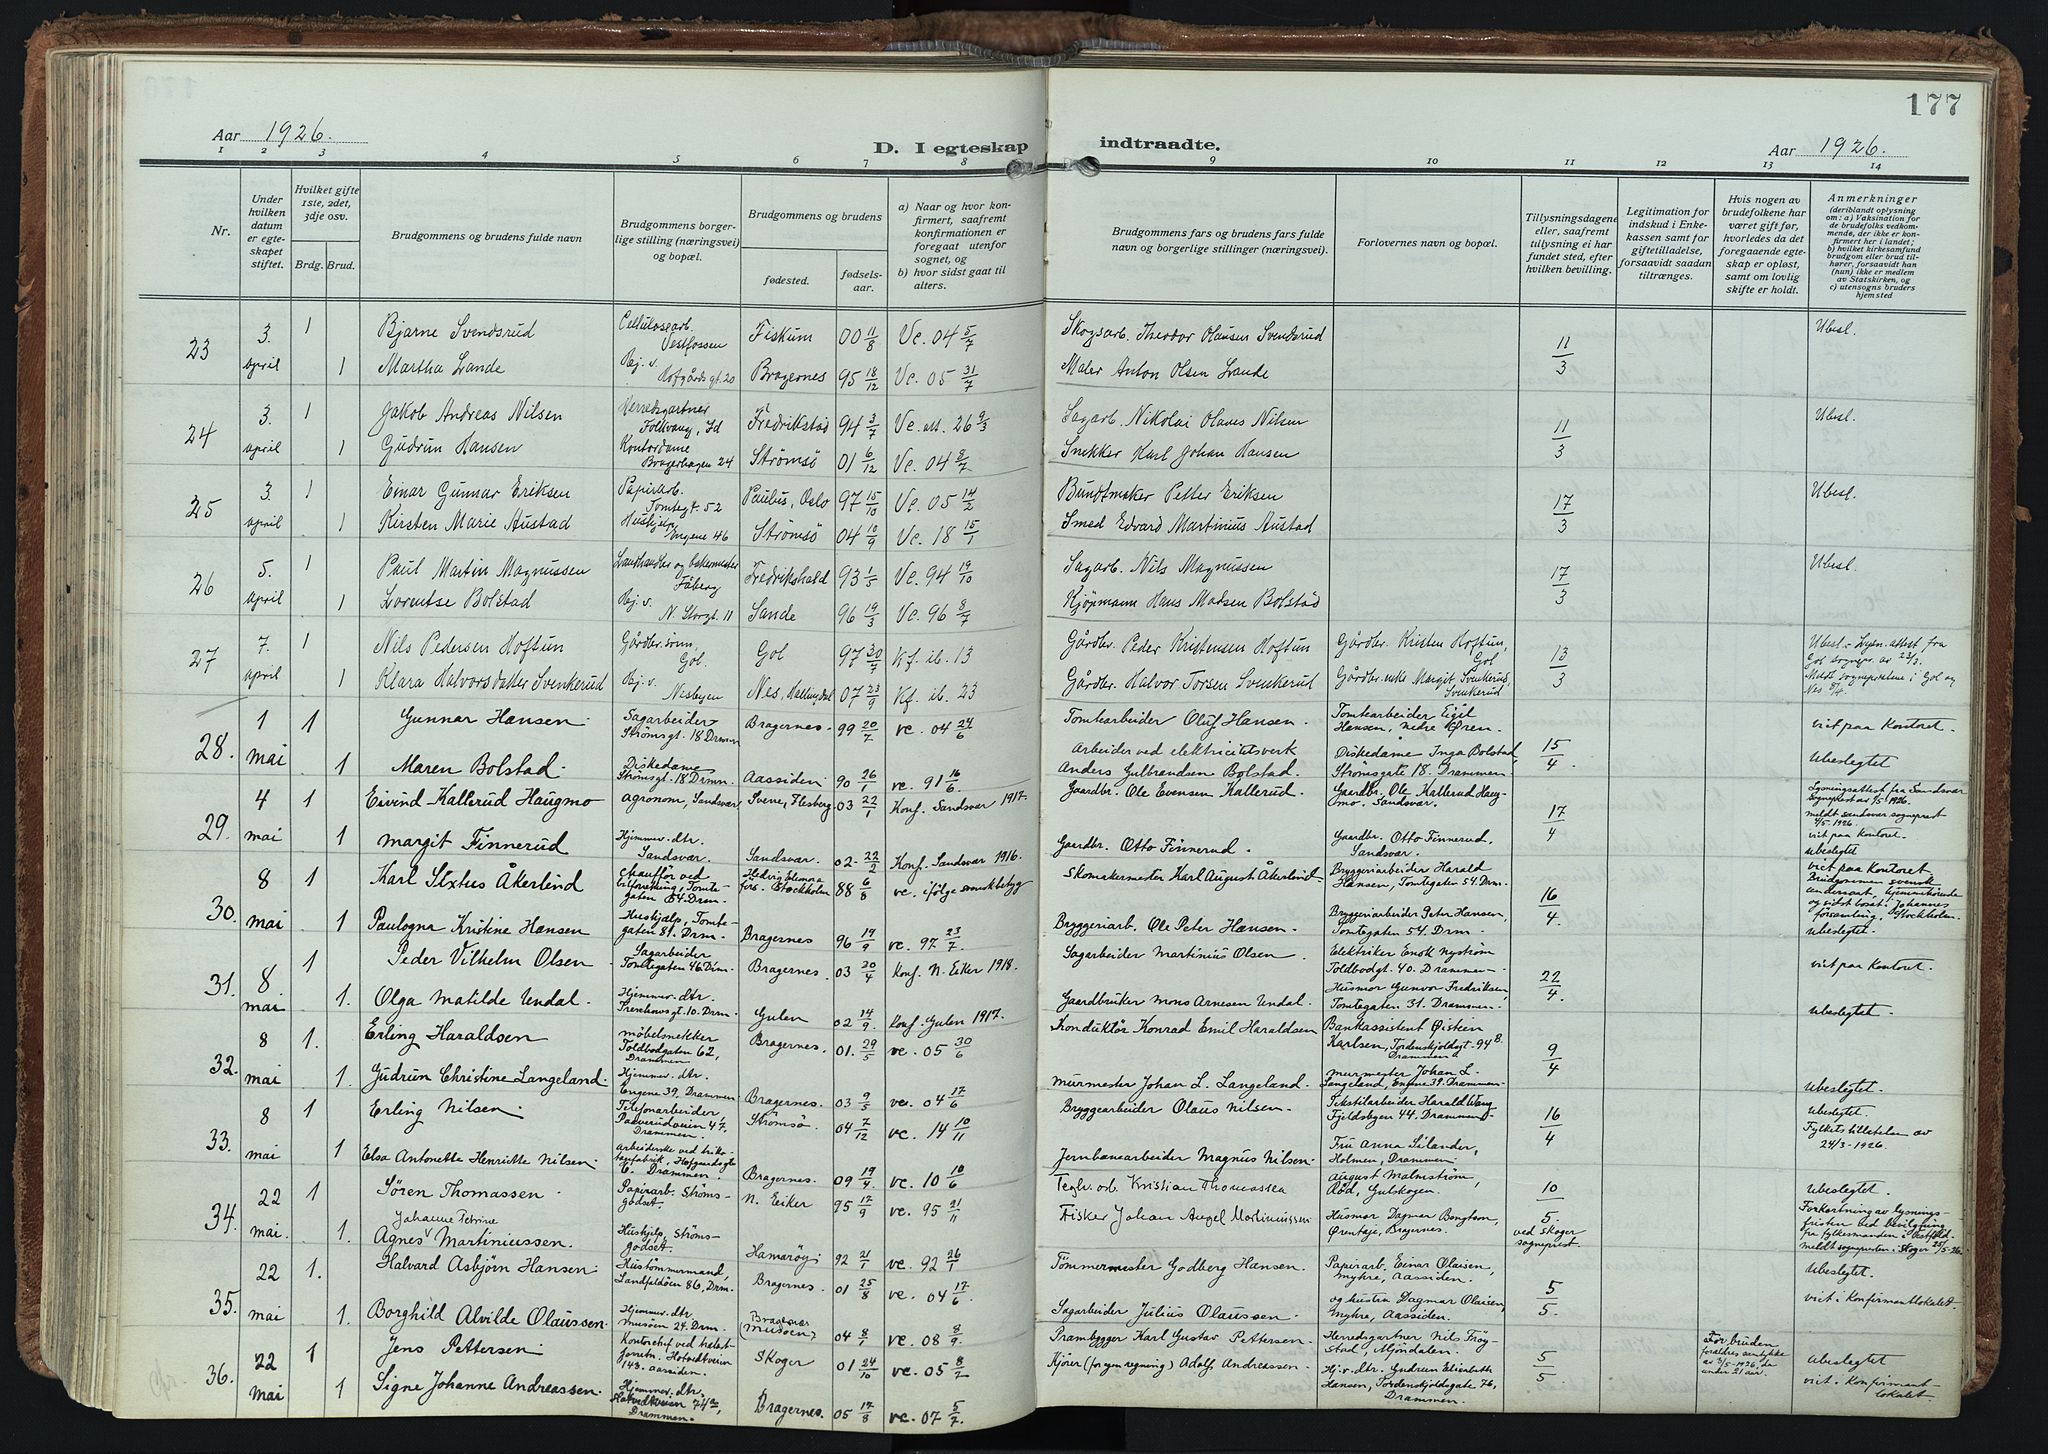 177
Aar 1926.
D. I egteskap indtraadte.
Aar 1926.
1 2 3 4 5 6 7 8 9 10 11 12 13 14
Nr.
Under hvilken datum er egteskapet stiftet.
Hvilket gifte 1ste, 2det, 3dje osv.
Brdg. Brud.
Brudgommens og brudens fulde navn
Brudgommens borgerlige stilling (næringsvei) og bopæl.
Brudgommens og brudens
fødested. fødselsaar.
a) Naar og hvor konfirmert, saafremt konfirmationen er foregaat utenfor sognet, og
b) hvor sidst gaat til alters.
Brudgommens fars og brudens fars fulde navn og borgerlige stillinger (næringsvei).
Forlovernes navn og bopæl.
Tillysningsdagene eller, saafremt tillysning ei har fundet sted, efter hvilken bevilling.
Legitimation for indskud i Enkekassen samt for giftetilladelse, forsaavidt saadan tiltrænges.
Hvis nogen av brudefolkene har været gift før, hvorledes da det foregaaende egteskap er opløst, samt om lovlig skifte er holdt.
Anmerkninger (deriblandt oplysning om: a) Vaksination for de brudefolks vedkommende, der ikke er konfirmert her i landet; b) hvilket kirkesamfund brudgom eller brud tilhører, forsaavidt han (hun) ikke er medlem av Statskirken, og c) utensogns bruders hjemsted
23 3. april 1 Bjarne Svendsrud Cellulosearb. Vestfossen Fiskum 00 11/8 Vc. 04 5/7 Skogsarb. Theodor Olausen Svendsrud 11/3 Ubesl.
1 Martha Lande Hj. v. Hofgårds gt. 20 Bragernes 95 18/12 Vc. 05 31/7 Maler Anton Olsen Lande
24 3. april 1 Jakob Andreas Nilsen Herredsgartner Folkvang, Sd Fredrikstad 94 3/7 Vc. att. 26 9/3 Sagarb. Nikolai Olaves Nilsen 11/3 Ubesl.
1 Gudrun Hansen Kontordame Bragerhagen 24 Strømsö 01 6/12 Vc. 04 8/7 Snekker Karl Johan Hansen
25 3. april 1 Einar Gunnar Eriksen Papirarb. Tomtegt. 52 Paulus, Oslo 97 15/10 Vc. 05 14/2 Bundtmaker Petter Eriksen 17/3 Ubesl.
1 Kirsten Marie Austad Hushjelp Engene 46 Strømsö 04 10/9 Vc. 18 15/1 Smed Edvard Martinius Austad
26 5. april 1 Paul Martin Magnussen Landhandler og Fåberg Fredrikshald 93 1/5 Vc. 94 19/10 Sagarb. Nils Magnussen 17/3 Ubesl.
1 Lorentse Bolstad Hj. v. N. Storgt. 11 Sande 96 19/3 Vc. 96 8/7 Kjøpmann Hans Madsen Bolstad
27 7. april 1 Nils Pedersen Hoftun Gårdbr.sönn, Gol. Gol 97 30/7 Kf. ib. 13 Gårdbr. Peder Kristensen Hoftun Gårdbr. Kristen Hoftun, Gol 13/3 Ubesl. Lysn. attest fra Gol sognepr. av 23/3.
1 Klara Halvorsdatter Svenkerud Hj. v. Nesbyen Nes, Hallingdal 07 23/9 Kf. ib. 23 Gårdbr. Halvor Torsen Svenkerud Gårdbr.enke Margit Svenkerud, Svenkerud Meldt sogneprestene i Gol og Nes 8/4.
28. 1 mai 1 Gunnar Hansen. Sagarbeider Strømsgt. 18 Drmn Bragernes. 99 20/7 vc. 04 24/6 Tomtearbeider Oluf Hansen. Tomtearbeider Egil Hansen, nedre Øren. 15/4. viet paa Kontoret.
1 Maren Bolstad. Diskedame Strømsgt. 18 Drmn. Aassiden 90 26/1 vc. 91 16/6 Arbeider ved elektricitetsverk Anders Gulbrandsen Bolstad. Diskedame Inga Bolstad, Strømsgate 18. Drammen. Ubeslegtet
29. 4 mai 1 Eivind Kallerud Haugmo agronom, Sandsvær Svene, Flesberg 03 22/1 Konf. Sandsvær 1917. Gaardbr. Ole Evensen Kallerud. Gaardbr. Ole Kallerud Haugmo. Sandsvær. 17/4 Lysningsattest fra Sandsvær Sogneprest av 1/5 1926. meldt sandsvær sogneprest 4/5-1926. viet paa Kontoret.
1 Margit Finnerud Hjemmev. dtr. Sandsvær. Sandsvær. 02. 22/2 Konf. Sandsvær 1916. Gaardbr. Otto Finnerud. Gaardbr. Otto Finnerud, Sandsvær. ubeslegtet
30. 8 mai 1 Karl Sixtus Åkerlind chauffør ved bilforretning, Tomtegaten 54 Drm. Hedvig Eleonora förs. Stockholm 88 6/8 vc. ifölge svensk betyg Skomakermester Karl August Åkerlind Bryggeriarbeider Harald Hansen, Tomtegaten 54. Drm. 16/4. viet paa Kontoret Brudgommen svensk undersaat hjemmehørende og sidst bosat i Johannes församling, Stockholm.
1 Paulogna Kristine Hansen Hushjelp, Tomtegaten 81. Drm. Bragernes 96 19/9 vc. 97 23/7. Bryggeriarb. Ole Peter Hansen. Bryggeriarbeider Peter Hansen, Tomtegaten 54. Drm. ubeslegtet.
31. 8. mai 1 Peder Vilhelm Olsen Sagarbeider Tomtegaten 46 Drm. Bragernes. 03 20/4 Konf. N. Eiker 1918. Sagarbeider Martinius Olsen. Elektriker Enok Nyström Toldbodgt. 40. Drammen. 22/4. viet paa Kontoret.
1. Olga Matilde Undal. Hjemmev. dtr. gt. 10. Drm. Gulen 02 14/9. Konf. Gulen 1917. Gaardbruker Mons Arnesen Undal. Husmor Gunvor Fredriksen, Tomtegaten 31. Drammen. ubeslegtet.
32. 8 mai 1. Erling Haraldsen møbelsnekker Toldbodgaten 62, Drammen Bragernes. 01. 29/5 vc. 05 30/6 Konduktör Konrad Emil Haraldsen Bankassistent Øistein Karlsen, Tordenskjoldsgt. 94 B. Drammen 9/4
1 Gudrun Christine Langeland. Hjemmev. dtr. Engene 39. Drammen Bragernes. 03 9/5 vc. 04 17/6 murmester Johan L. Langeland. murmester Johan L. Langeland, Engene 39. Drammen. Ubeslegtet.
33. 8 mai 1 Erling Nilsen. Telefonarbeider 47. Drammen. Strömsö. 04 7/12 vc. 14 10/11 Bryggearbeider Olaus Nilsen. Tekstilarbeider Harald Wang Fjeldsbyen 44. Drammen 16/4 ubeslegtet. Fylkets tillatelse av 24/3-1926.
1 Elsa Antonette Henriette Nilsen. arbeiderske ved trikotagefabrik, Hofgaardsgt. 6. Drammen. Bragernes. 09 19/4. vc. 10 10/6 Jernbanearbeider Magnus Nilsen. Fru Anna Silander, Holmen, Drammen.
34. 22 mai. 1 Sören Thomassen Papirarb. Strömsgodset. N. Eiker 95 17/9 vc. 95 21/11 Teglv. arb. Kristian Thomassen august Malmström, Röd, Gulskogen. 10/5. ved Skoger sogneprest. ubeslegtet.
1. Agnes Johanne Petrine Martiniussen. Hushjelp, Strömsgodset. Hamaröy 92 21/1 vc. 92 26/1 Fisker Johan Angel Martiniussen Husmor Dagmar Bengtson, Bragernes. Forkortning av lysningsfristen ved bevilgning fra fylkesmannen i Vestfold. meldt sognepresten i Skoger 25/5-26.
35. 22 mai 1. Halvard Asbjörn Hansen Hustömmermand, Landfaldöen 86, Drm. Bragernes 01 25/8 vc. 04 17/6. Tömmermester Godberg Hansen. Papirarb. Einar Olaisen, myhre, Aassiden. 5/5. Ubeslegtet.
1. Borghild Alvilde Olaussen. Hjemmev. dtr. musöen 24. Drm. Bragernes musöen 04 8/1 vc. 08 8/9. Sagarbeider Julius Olaussen. og hustru Dagmar Olaisen, myhre, Aassiden. viet i Konfirmantlokalet.
36. 22 mai 1 Jens Pettersen. Kontorchef ved forretn. Hotvedtveien 143. aassiden. Skoger 01 24/10 vc. 05 8/2 Prambygger Karl Gustav Pettersen. Herredsgartner Nils Fröystad, Mjöndalen. 5/5. For bruden foraldres samtykke av 3/5-1926, da under 21 aar. Ubeslegtet
1 Signe Johanne Andreassen. Hjemmev. dtr. Hotvedtveien 74 a, Drammen. Bragernes. 05 17/8 vc. 07 5/7. Kjörer (for egen regning) Adolf Andreassen. Hj.v. dtr. Gudrun Elisabeth Hansen, Tordenskjoldsgate 76, Drammen. viet i Konfirmantlokalet.